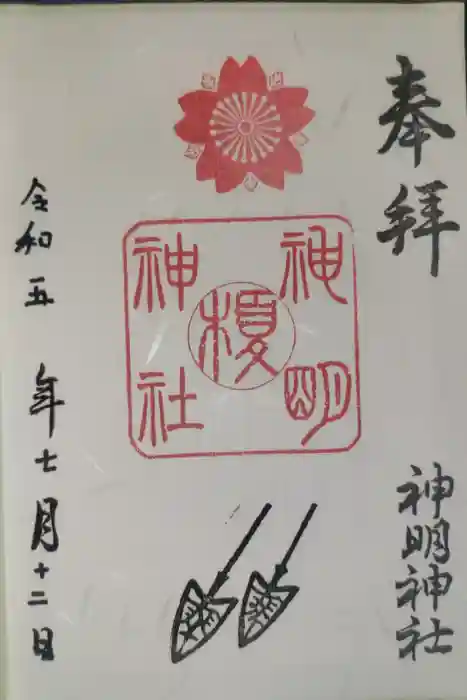 奉拝
神明神社
神明
榎
神社
令和五年七月十二日